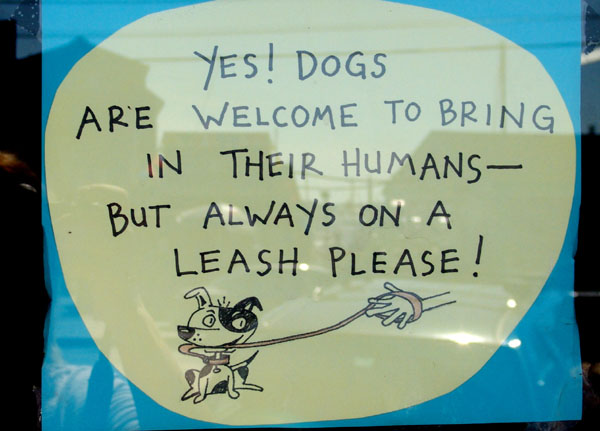 YES! DOGS
ARE WELCOME TO BRING
IN THEIR HUMANS—
BUT ALWAYS ON A
LEASH PLEASE!